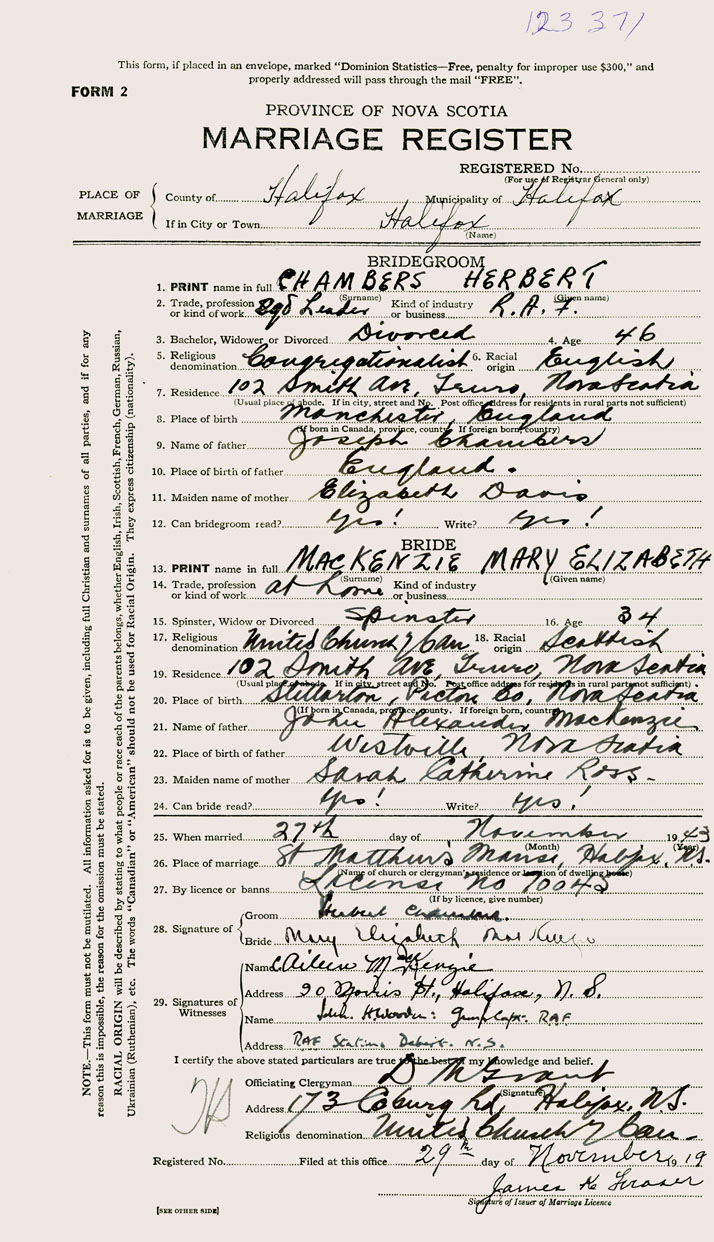 123 371
This form, if placed in an envelope, marked "Dominion Statistics—Free, penalty for improper use $300," and
properly addressed will pass through the mail "FREE".
FORM 2
PROVINCE OF NOVA SCOTIA
MARRIAGE REGISTER
REGISTERED No.
(For use of Registrar General only)
PLACE OF MARRIAGE
County of Halifax Municipality of Halifax
If in City or Town Halifax
(Name)
BRIDEGROOM
1. PRINT name in full CHAMBERS HERBERT
(Surname) (Given name)
2. Trade, profession or kind of work Sqd Leader Kind of industry or business R.A.F.
3. Bachelor, Widower or Divorced Divorced 4. Age 46
5. Religious denomination Congregationalist 6. Racial origin English
7. Residence 102 Smith Ave, Truro, Nova Scotia
(Usual place of abode. If in city, street and No. Post office address for residents in rural parts not sufficient)
8. Place of birth Manchester, England
(If born in Canada, province, county. If foreign born, country)
9. Name of father Joseph Chambers
10. Place of birth of father England.
11. Maiden name of mother Elizabeth Davis
12. Can bridegroom read? Yes! Write? Yes!
BRIDE
13. PRINT name in full MACKENZIE MARY ELIZABETH
(Surname) (Given name)
14. Trade, profession or kind of work at home Kind of industry or business
15. Spinster, Widow or Divorced Spinster 16. Age 34
17. Religious denomination United Church of Can 18. Racial origin Scottish
19. Residence 102 Smith Ave, Truro, Nova Scotia
(Usual place of abode. If in city, street and No. Post office address for residents in rural parts not sufficient)
20. Place of birth Stellarton, Pictou Co, Nova Scotia
(If born in Canada, province, county. If foreign born, country)
21. Name of father John Alexander MacKenzie
22. Place of birth of father Westville, Nova Scotia
23. Maiden name of mother Sarah Catherine Ross
24. Can bride read? Yes! Write? Yes!
25. When married 27th day of November 1943
(Month) (Year)
26. Place of marriage St Matthew's Manse, Halifax, N.S.
(Name of church or clergyman's residence or location of dwelling house)
27. By licence or banns License no 70045
(If by licence, give number)
28. Signature of
Groom Herbert Chambers.
Bride Mary Elizabeth MacKenzie
29. Signatures of Witnesses
Name Aileen McKenzie
Address 90 Morris St., Halifax, N.S.
Name H. Wooder: RAF
Address RAF Station Debert. N.S.
I certify the above stated particulars are true to the best of my knowledge and belief.
Officiating Clergyman D McGrant
(Signature)
Address 173 Coburg Rd, Halifax, N.S.
Religious denomination United Church of Can
Registered No. Filed at this office 29th day of November, 19 19
James K Fraser
Signature of Issuer of Marriage Licence
[SEE OTHER SIDE]
NOTE.—This form must not be mutilated. All information asked for is to be given, including full Christian and surnames of all parties, and if for any
reason this is impossible, the reason for the omission must be stated.
RACIAL ORIGIN will be described by stating to what people or race each of the parents belongs, whether English, Irish, Scottish, French, German, Russian,
Ukrainian (Ruthenian), etc. The words "Canadian" or "American" should not be used for Racial Origin. They express citizenship (nationality).